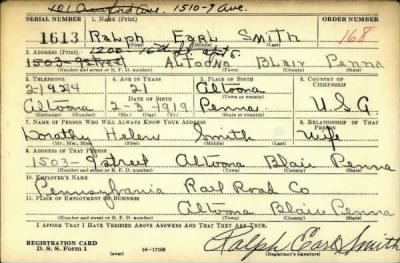 401 Crawford Ave. 1510-7 Ave.
SERIAL NUMBER 1. NAME (Print) ORDER NUMBER
1613 RALPH EARL SMITH 168
(First) (Middle) (Last)
2. ADDRESS (Print) 1200-16th St apt 5.
1503-9 Street ALTOONA BLAIR PENNA
(Number and street or R. F. D. number) (Town) (County) (State)
3. TELEPHONE 4. AGE IN YEARS 5. PLACE OF BIRTH 6. COUNTRY OF CITIZENSHIP
2-1924 21 Altoona
DATE OF BIRTH
Altoona 2-3-1919 Penna. U.S.A.
(Exchange) (Number) (Mo.) (Day) (Yr.) (State or county)
7. NAME OF PERSON WHO WILL ALWAYS KNOW YOUR ADDRESS 8. RELATIONSHIP OF THAT PERSON
Dorothy Helen Smith Wife
(Mr., Mrs., Miss) (First) (Middle) (Last)
9. ADDRESS OF THAT PERSON
1503-9 Street Altoona Blair Penna
(Number and street or R. F. D. number) (Town) (County) (State)
10. EMPLOYER'S NAME
Pennsylvania Rail Road Co
11. PLACE OF EMPLOYMENT OR BUSINESS
Altoona Blair Penna
(Number and street or R. F. D. number) (Town) (County) (State)
I AFFIRM THAT I HAVE VERIFIED ABOVE ANSWERS AND THAT THEY ARE TRUE.
REGISTRATION CARD
D. S. S. Form 1 (over) 16-17105 Ralph Earl Smith
(Registrant's signature)